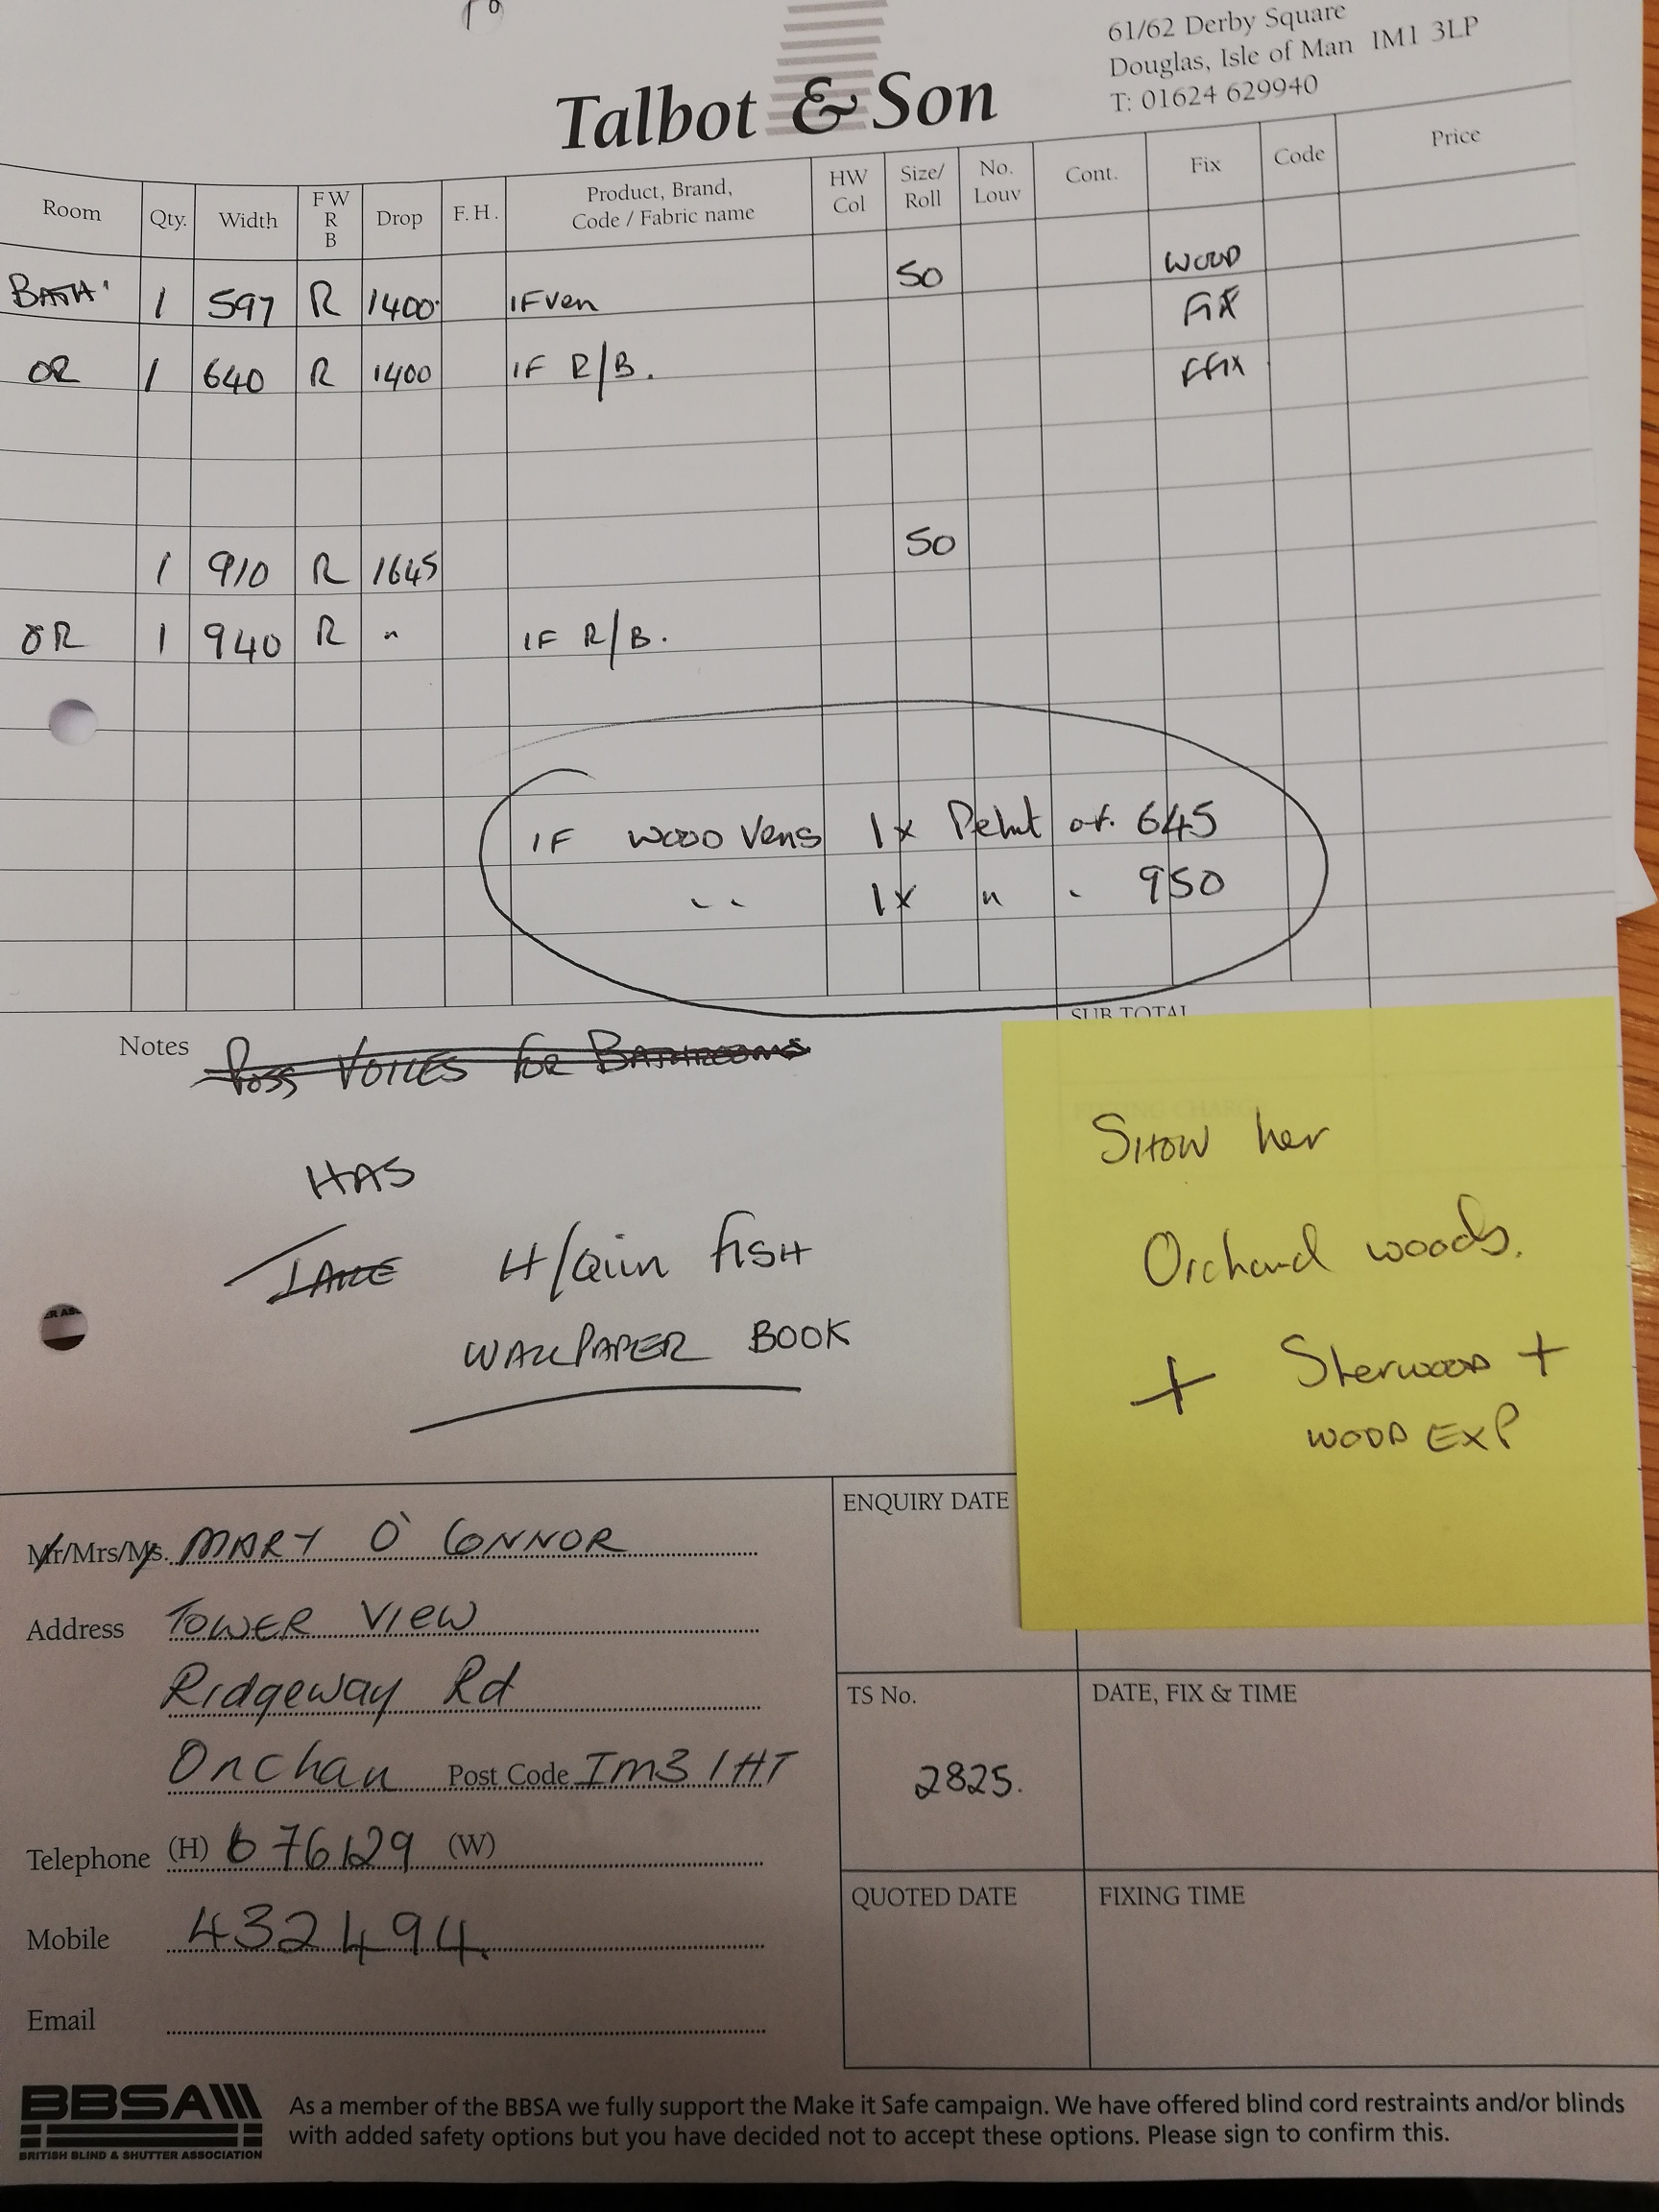 61/62 Derby Square
Douglas, Isle of Man IM1 3LP
T: 01624 629940
Talbot & Son
Room Qty. Width F W R B Drop F.H. Product, Brand, Code / Fabric name HW Col Size/ Roll No. Louv Cont. Fix Code Price
BATH' 1 597 R 1400 IF Ven 50 WOOD FIX
OR 1 640 R 1400 IF R/B. FFIX
1 910 R 1645 50
OR 1 940 R " IF R/B.
IF WOOD Vens 1x Pelmt at 645
" 1x " " 950
SUB TOTAL
Notes Poss VOILES FOR BATHROOMS
HAS
TAKE H/Quin FISH
WALLPAPER BOOK
Show her
Orchard woods.
+ Sherwood +
WOOD EXP
Mr/Mrs/Ms. MARY O'CONNOR
Address TOWER VIEW
Ridgeway Rd
Onchan Post Code IM3 1HT
Telephone (H) 676129 (W)
Mobile 432494.
Email
ENQUIRY DATE
TS No. DATE, FIX & TIME
2825.
QUOTED DATE FIXING TIME
BBSA
BRITISH BLIND & SHUTTER ASSOCIATION
As a member of the BBSA we fully support the Make it Safe campaign. We have offered blind cord restraints and/or blinds
with added safety options but you have decided not to accept these options. Please sign to confirm this.